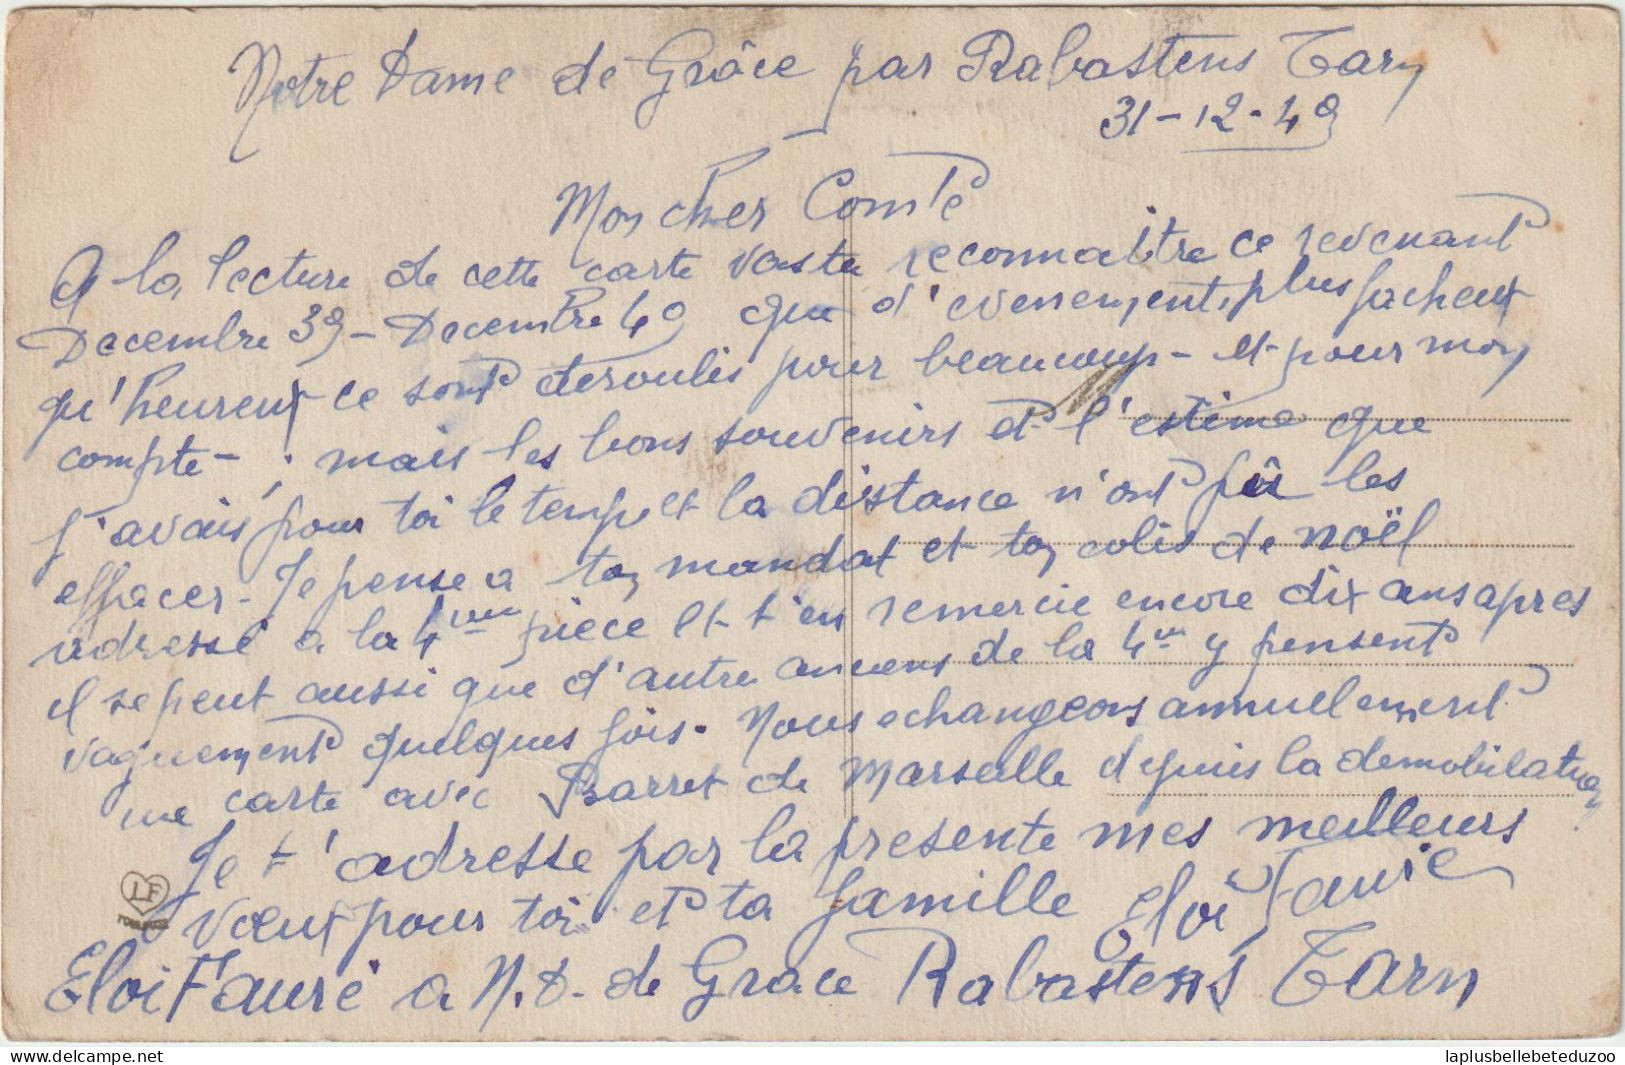 Notre Dame de Grâce par Rabastens Tarn
31-12-49
Mon cher Comte
A la lecture de cette carte vas tu reconnaitre ce revenant
Decembre 39 - Decembre 49 que d'evenements, plus facheux
qu'heureux ce sont deroulés pour beaucoup - et pour mon
compte - ; mais les bons souvenirs et l'estime que
j'avais pour toi le temps et la distance n'ont pû les
effacer. Je pense a ton mandat et ton colis de noël
adressé a la 4eme pièce et t'en remercie encore dix ans apres
il se peut aussi que d'autres anciens de la 4eme y pensent
vaguement quelques fois. Nous echangeons annuellement
une carte avec Barret de Marseille depuis la demobilation
Je t'adresse par la presente mes meilleurs
vœux pour toi et ta famille Eloi Faure
LF
TOULOUSE
Eloi Faure a N.D. de Grace Rabastens Tarn
laplusbellebeteduzoo
delcampe.net